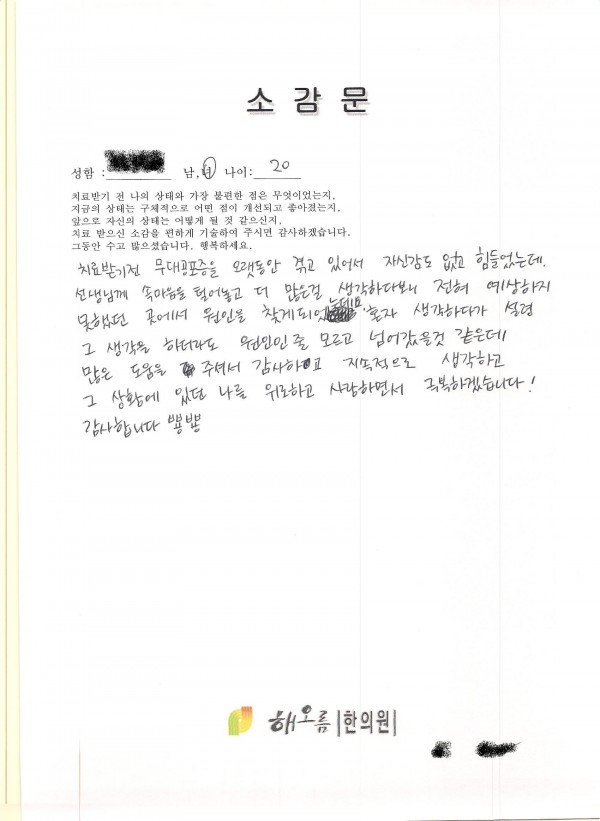 소 감 문
성함 : 남,녀 나이: 20
치료받기 전 나의 상태와 가장 불편한 점은 무엇이었는지,
지금의 상태는 구체적으로 어떤 점이 개선되고 좋아졌는지,
앞으로 자신의 상태는 어떻게 될 것 같으신지,
치료 받으신 소감을 편하게 기술하여 주시면 감사하겠습니다.
그동안 수고 많으셨습니다. 행복하세요.
치료받기전 무대공포증을 오랫동안 겪고 있어서 자신감도 없고 힘들었는데,
선생님께 속마음을 털어놓고 더 많은걸 생각하다보니 전혀 예상하지
못했던 곳에서 원인을 찾게되었는데요, 혼자 생각하다가 설령
그 생각을 하더라도 원인인줄 모르고 넘어갔을것 같은데
많은 도움을 주셔서 감사하고 지속적으로 생각하고
그 상황에 있던 나를 위로하고 사랑하면서 극복하겠습니다!
감사합니다 뿅뿅
해오름 한의원